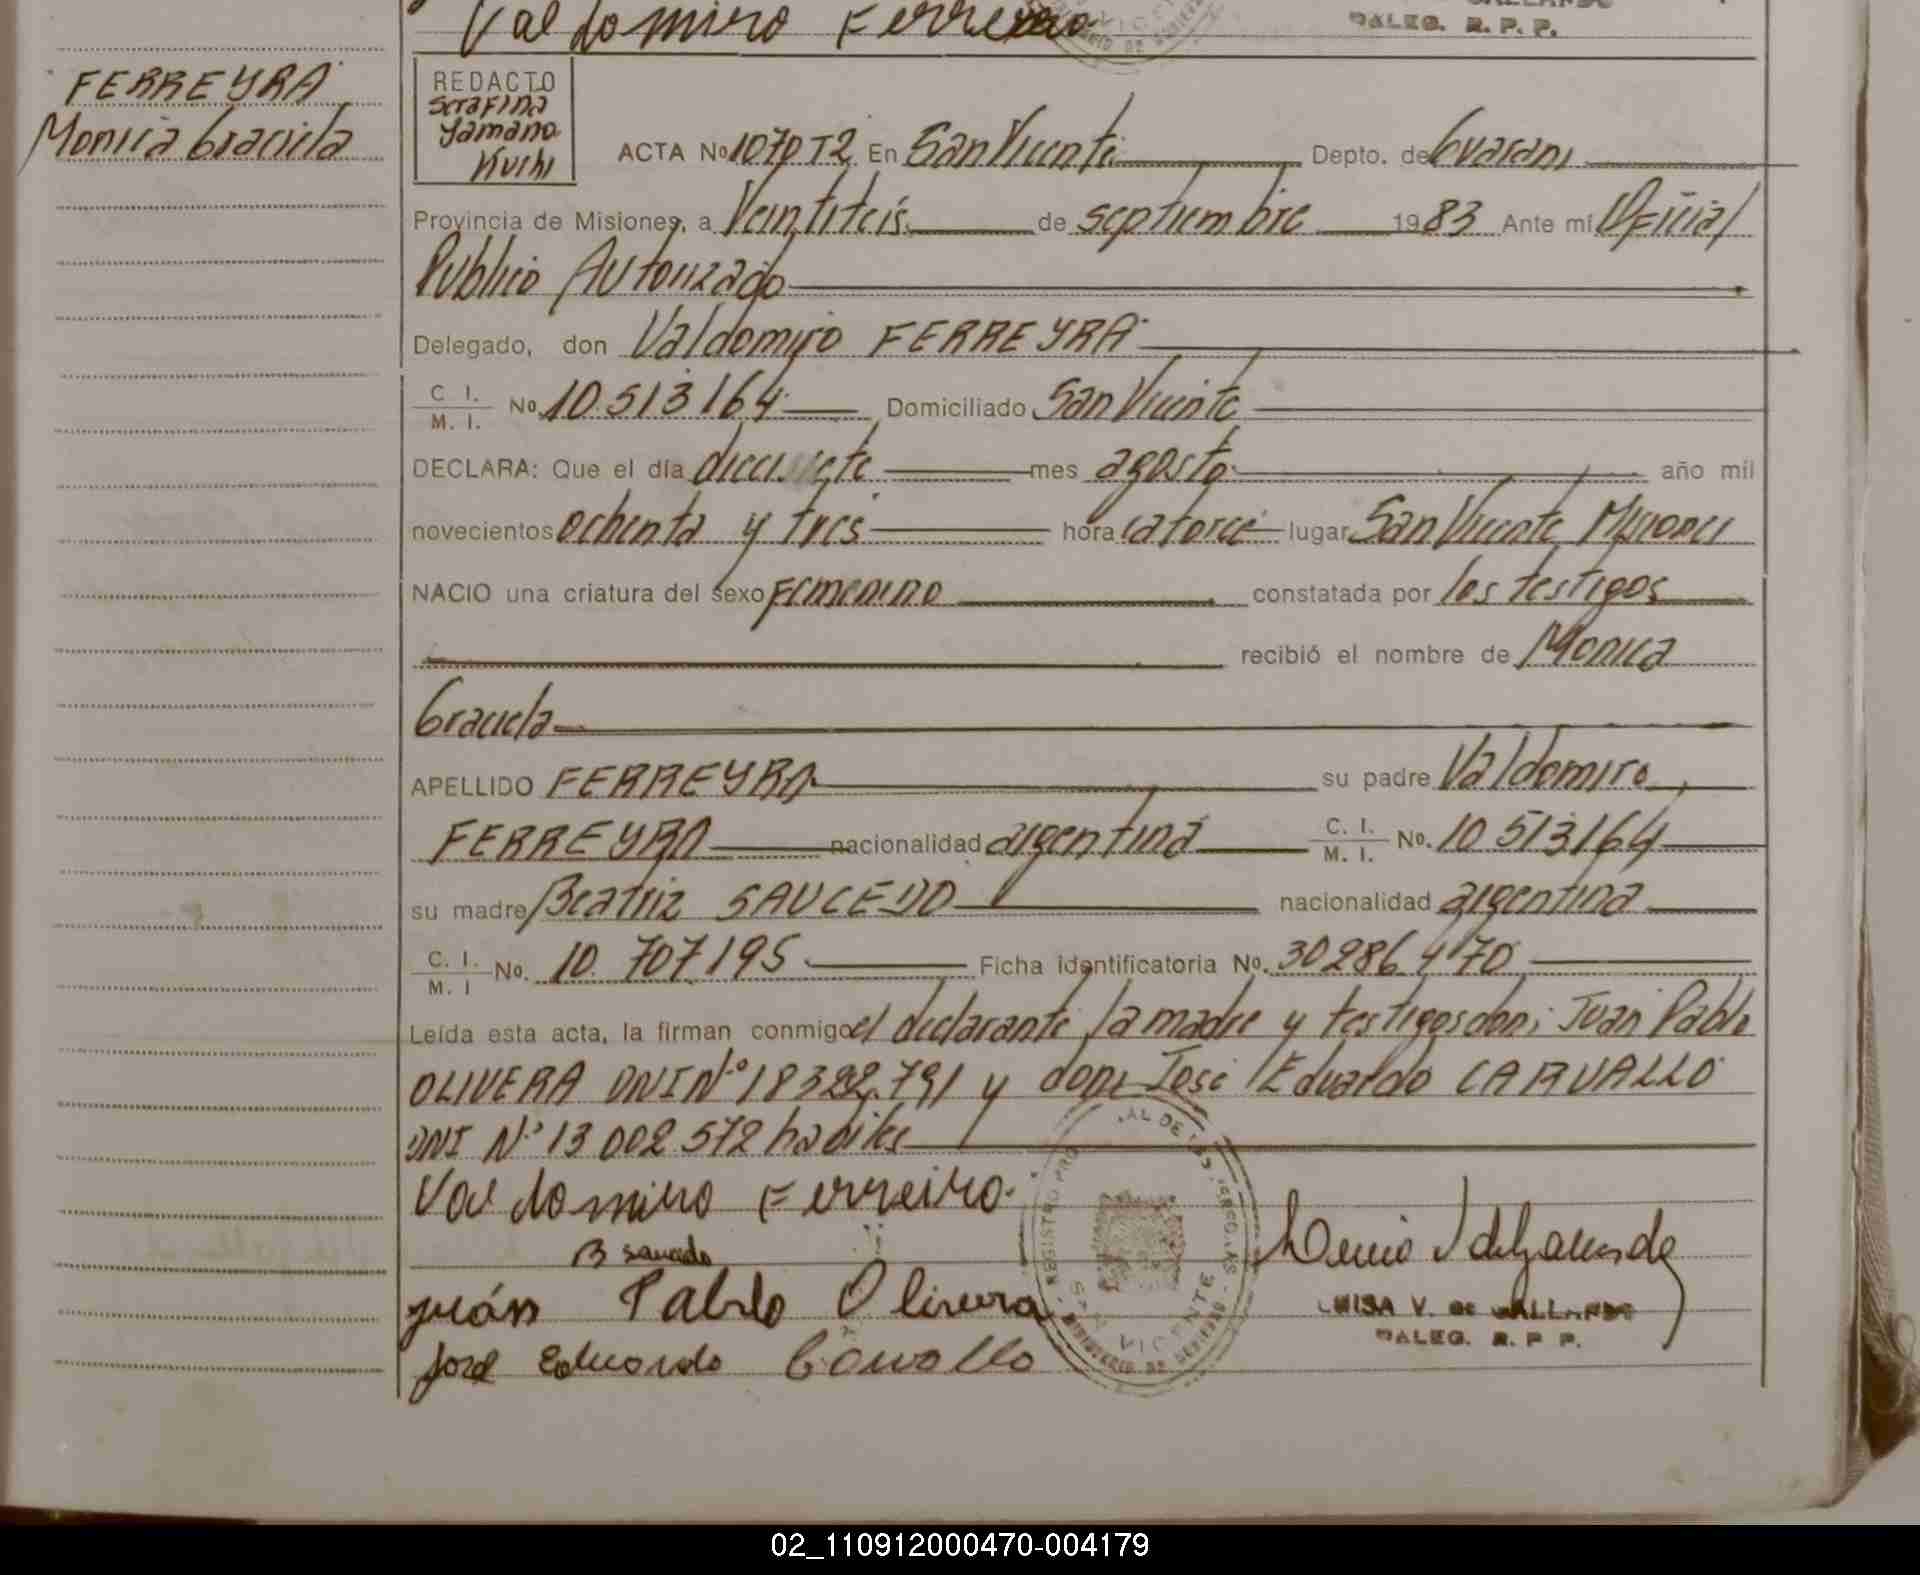 Valdomiro Ferreiro
DALEG. R. P. P.
FERREYRA
Monica Graciela
REDACTO
Serafina
Yamano
Kuchi
ACTA No 1070 T2 En San Vicente Depto. de Guarani
Provincia de Misiones, a Veintiteis de septiembre 1983 Ante mí Oficial
Publico Autorizado
Delegado, don Valdomiro FERREYRA
C. I.
M. I. No. 10.513164 Domiciliado San Vicente
DECLARA: Que el día diecisiete mes agosto año mil
novecientos ochenta y tres hora catorce lugar San Vicente Misiones
NACIO una criatura del sexo Femenino constatada por los testigos
recibió el nombre de Monica
Graciela
APELLIDO FERREYRA su padre Valdomiro
FERREYRA nacionalidad argentina C. I. M. I. No. 10 513164
su madre Beatriz SAUCEDO nacionalidad argentina
C. I. M. I No. 10. 707195 Ficha identificatoria No. 30286470
Leída esta acta, la firman conmigo el declarante la madre y testigos don; Juan Pablo
OLIVERA DNI Nº 18322.791 y don; José Eduardo CARVALLO
DNI Nº 13 002 572 habiles
Valdomiro Ferreiro
B saucedo
juán Pablo Olivera
José Eduardo Carvallo
REGISTRO
SAN VICENTE
LUISA V. DE GALLARDO
DALEG. R. P P.
02_110912000470-004179